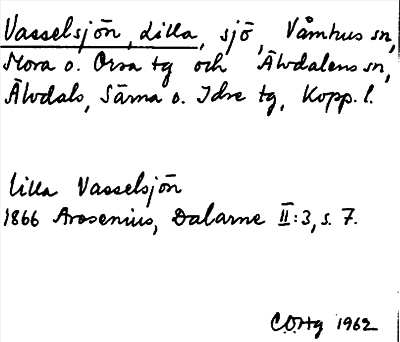 Vasselsjön, Lilla, sjö, Våmhus sn,
Mora o. Orsa tg och Älvdalens sn,
Älvdals, Särna o. Idre tg, Kopp. l.
Lilla Vasselsjön
1866 Arosenius, Dalarne II:3, s. 7.
1962